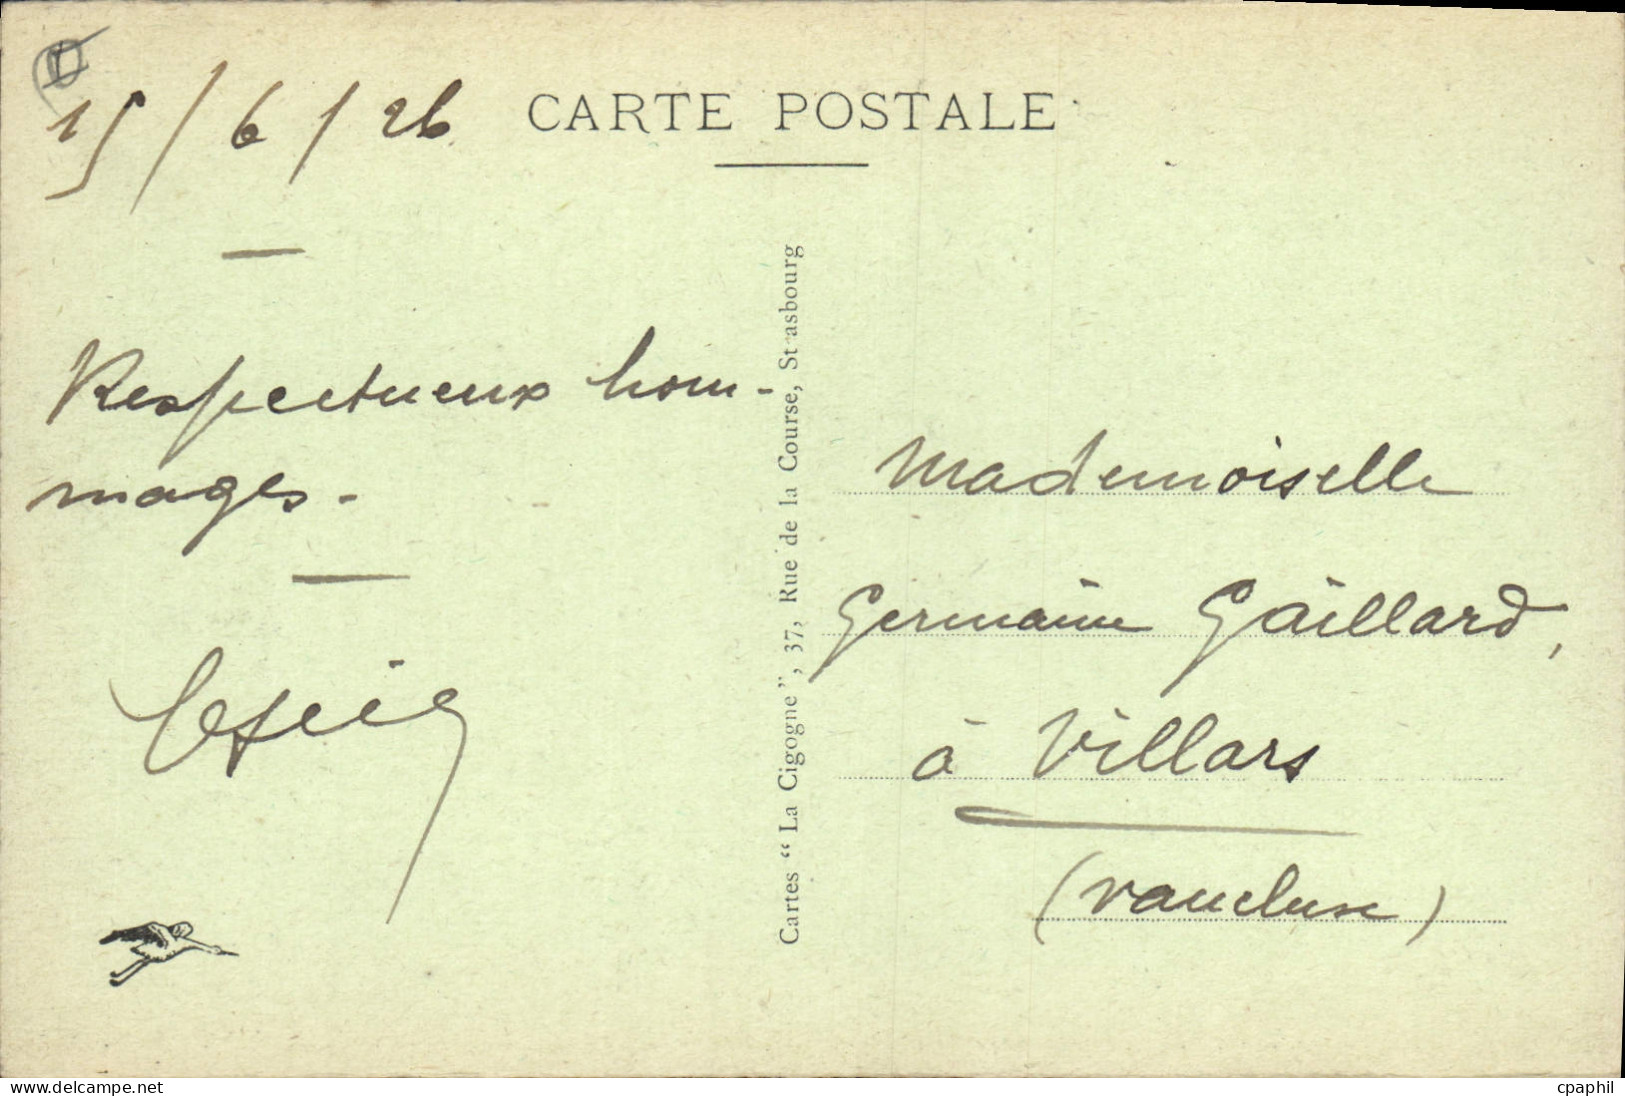 15/6/26
CARTE POSTALE
Respectueux hom-
mages.
Cartes “La Cigogne”, 37, Rue de la Course, Strasbourg
Mademoiselle
Germaine Gaillard,
à Villars
(Vaucluse)
www.delcampe.net
cpaphil